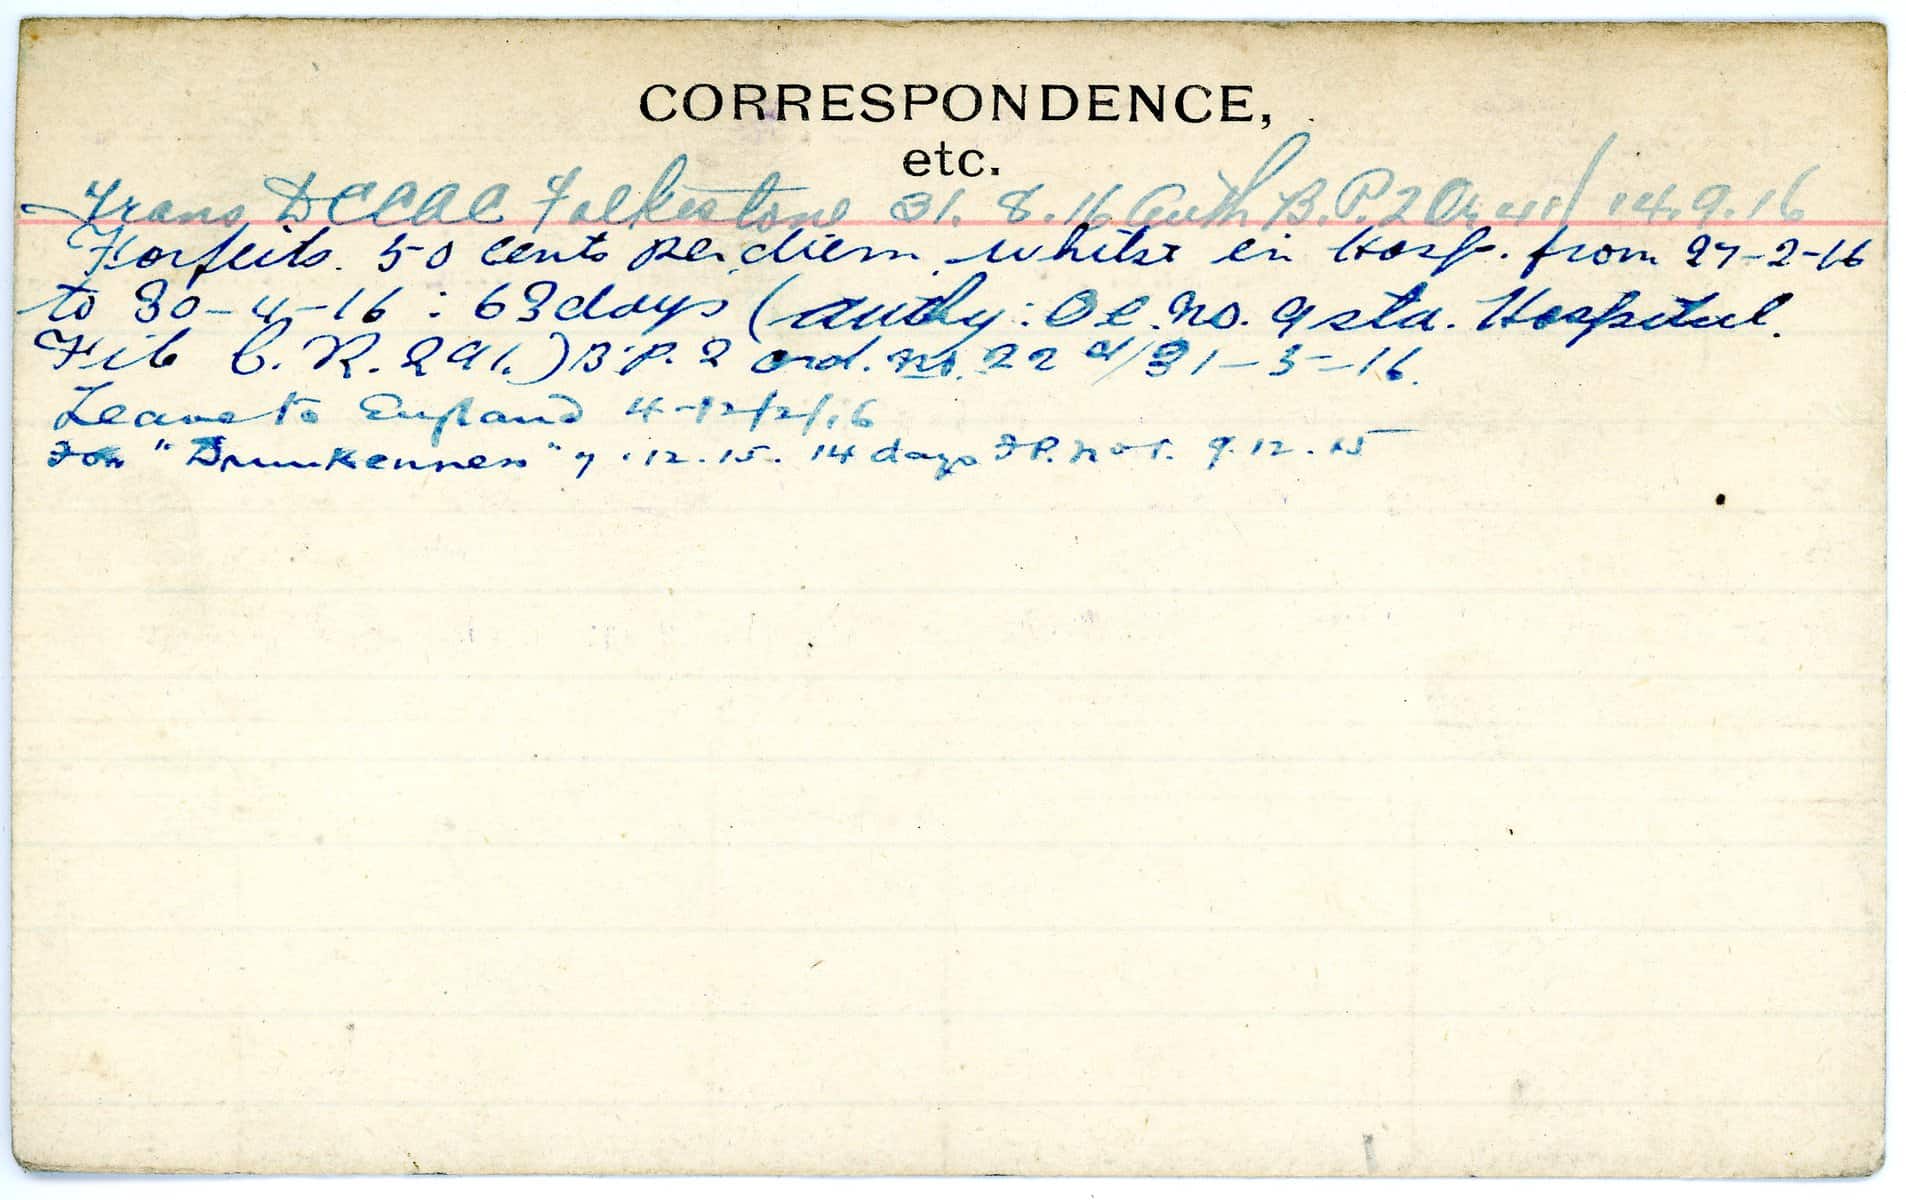 CORRESPONDENCE,
etc.
Trans DCCAC Folkestone 31.8.16 Auth B.P.2 Or 41 / 14.9.16
Forfeits 50 cents per diem whilst in Hosp. from 27-2-16
to 30-4-16 : 63 days (authy: OC. No. 9 sta. Hospital.
C.R. 291.) B.P. 2 ord. no. 22 d/31-3-16.
Leave to England 4-12/2/16
For "Drunkenness" 7.12.15. 14 days F.P. No 1. 9.12.15